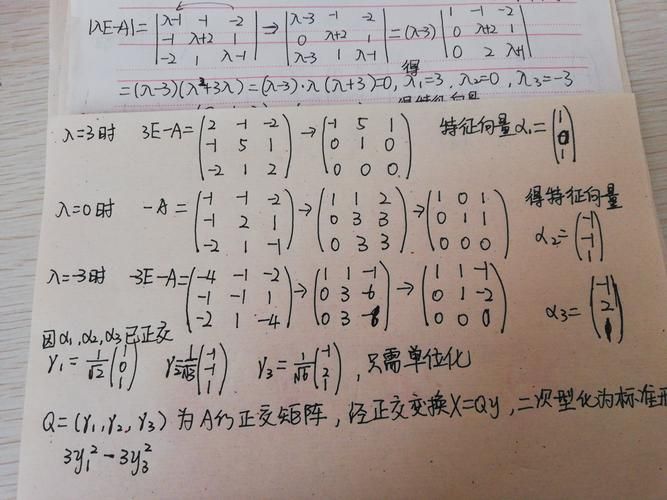 |λE-A| = |λ-1 -1 -2; -1 λ+2 1; -2 1 λ-1| ⇒ |λ-3 -1 -2; 0 λ+2 1; λ-3 1 λ-1| = (λ-3) |1 -1 -2; 0 λ+2 1; 0 2 λ+1|
= (λ-3)(λ²+3λ) = (λ-3)·λ(λ+3)=0, 得 λ₁=3, λ₂=0, λ₃=-3
得特征向量
λ=3时 3E-A = (2 -1 -2; -1 5 1; -2 1 2) → (-1 5 1; 0 1 0; 0 0 0) 特征向量α₁ = (1; 0; 1)
λ=0时 -A = (-1 -1 -2; -1 2 1; -2 1 -1) → (1 1 2; 0 3 3; 0 3 3) → (1 0 1; 0 1 1; 0 0 0) 得特征向量 α₂ = (-1; -1; 1)
λ=-3时 -3E-A = (-4 -1 -2; -1 -1 1; -2 1 -4) → (1 1 -1; 0 3 -6; 0 3 -6) → (1 1 -1; 0 1 -2; 0 0 0) α₃ = (-1; 2; 1)
因α₁,α₂,α₃已正交
γ₁ = 1/√2 (1; 0; 1) γ₂ = 1/√3 (-1; -1; 1) γ₃ = 1/√6 (-1; 2; 1), 只需单位化
Q=(γ₁,γ₂,γ₃) 为A的正交矩阵, 经正交变换X=Qy, 二次型化为标准形
3y₁²-3y₃²